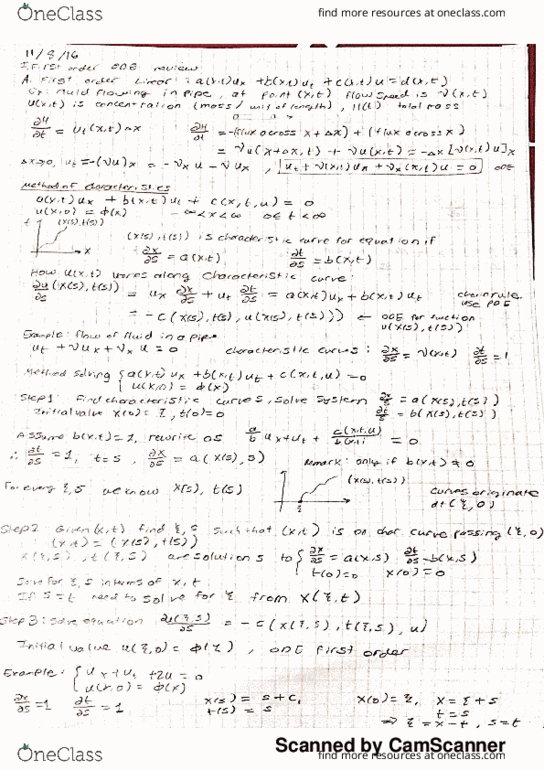 OneClass
find more resources at oneclass.com
11/8/16
I. First order ODE review
A. First order Linear: a(x,t)ux + b(x,t)ut + c(x,t)u = d(x,t)
Ex: fluid flowing in pipe, at point (x,t) flow speed is v(x,t)
u(x,t) is concentration (mass/unit of length), M(t) total mass
∂M/∂t = ut(x,t)Δx ∂M/∂t = -(flux across x+Δx) + (flux across x)
= vu(x+Δx,t) + vu(x,t) = -Δx[v(x,t)u]x
Δx→0, ut = -(vu)x = -vxu - vux, ut + v(x,t)ux + vx(x,t)u = 0 ODE
Method of characteristics
a(x,t)ux + b(x,t)ut + c(x,t,u) = 0
u(x,0) = ϕ(x) -∞<x<∞ 0≤t<∞
t (x(s),t(s))
x
(x(s),t(s)) is characteristic curve for equation if
∂x/∂s = a(x,t) ∂t/∂s = b(x,t)
How u(x,t) varies along characteristic curve:
∂u/∂s (x(s),t(s)) = ux ∂x/∂s + ut ∂t/∂s = a(x,t)ux + b(x,t)ut chain rule use PDE
= -c(x(s),t(s),u(x(s),t(s))) ← ODE for function u(x(s),t(s))
Example: flow of fluid in a pipe
ut + vux + vxu = 0 characteristic curves: ∂x/∂s = v(x,t) ∂t/∂s = 1
Method solving { a(x,t)ux + b(x,t)ut + c(x,t,u) = 0
u(x,0) = ϕ(x)
Step 1: Find characteristic curves, solve system ∂x/∂s = a(x(s),t(s))
Initial value x(0) = ξ, t(0)=0 ∂t/∂s = b(x(s),t(s))
Assume b(x,t)=1, rewrite as a/b ux + ut + c(x,t,u)/b(x,t) = 0
∴ ∂t/∂s = 1, t=s, ∂x/∂s = a(x(s),s) Remark: only if b(x,t) ≠ 0
For every ξ,s we know x(s), t(s) (x(s),t(s)) curves originate at (ξ,0)
ξ
Step 2 Given (x,t) find ξ,s such that (x,t) is on char curve passing (ξ,0)
(x,t) = (x(s),t(s))
x(ξ,s), t(ξ,s) are solutions to { ∂x/∂s = a(x,s) ∂t/∂s = b(x,s)
t(0)=0 x(0)=0
Solve for ξ,s in terms of x,t
If s=t need to solve for ξ from x(ξ,t)
Step 3: solve equation ∂u(ξ,s)/∂s = -c(x(ξ,s),t(ξ,s),u)
Initial value u(ξ,0) = ϕ(ξ), ODE first order
Example: { ux + ut + 2u = 0
u(x,0) = ϕ(x)
∂x/∂s = 1 ∂t/∂s = 1 x(s) = s+c1 x(0)=ξ, x = ξ+s
t(s) = s t=s
⇒ ξ = x-t, s=t
Scanned by CamScanner
OneClass
find more resources at oneclass.com